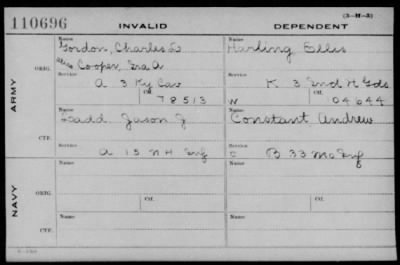 (3-H-3)
110696 INVALID DEPENDENT
ARMY
ORIG.
Name
Gordon, Charles L
alias Cooper, Ira A
Service
A 3 Ky Cav
Ctf.
78513
Name
Harling Ellis
Service
K 3 Ind H Gds
Ctf.
W 04644
CTF.
Name
Ladd Jason J
Service
A 15 N H Inf
Name
Constant Andrew
Service
C B 33 Mo Inf
NAVY
ORIG.
Name
Service
Ctf.
Name
Service
Ctf.
CTF.
Name
Service
Name
Service